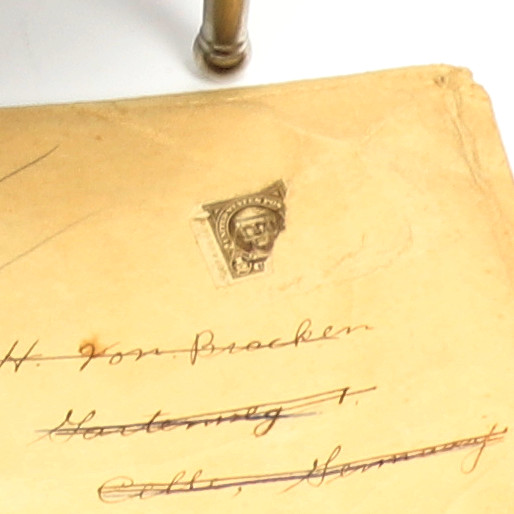 H. Von Bracken
Gartenweg 1.
Celle, Germany